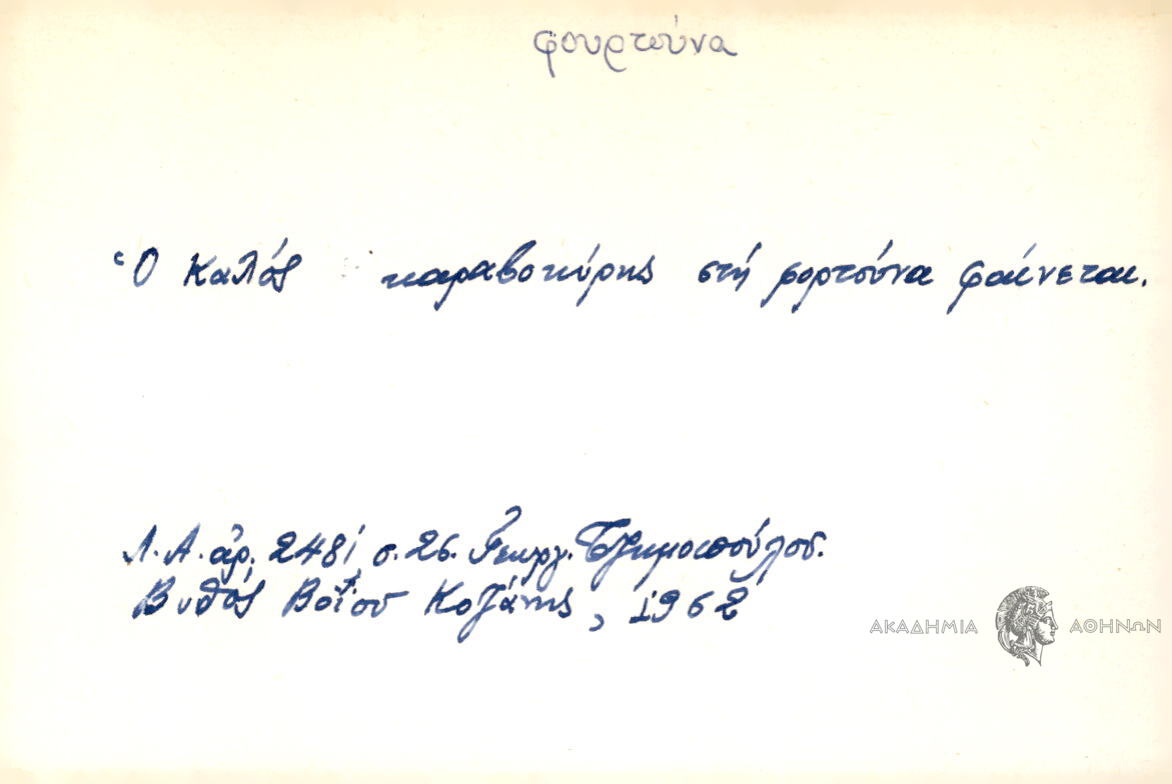 φουρτούνα
Ὁ καλός καραβοκύρης στή φορτούνα φαίνεται.
Λ.Α. ἀρ. 2481, σ. 26. Γεωργ.
Βυθός Βοΐου Κοζάνης, 1962
ΑΚΑΔΗΜΙΑ ΑΘΗΝΩΝ